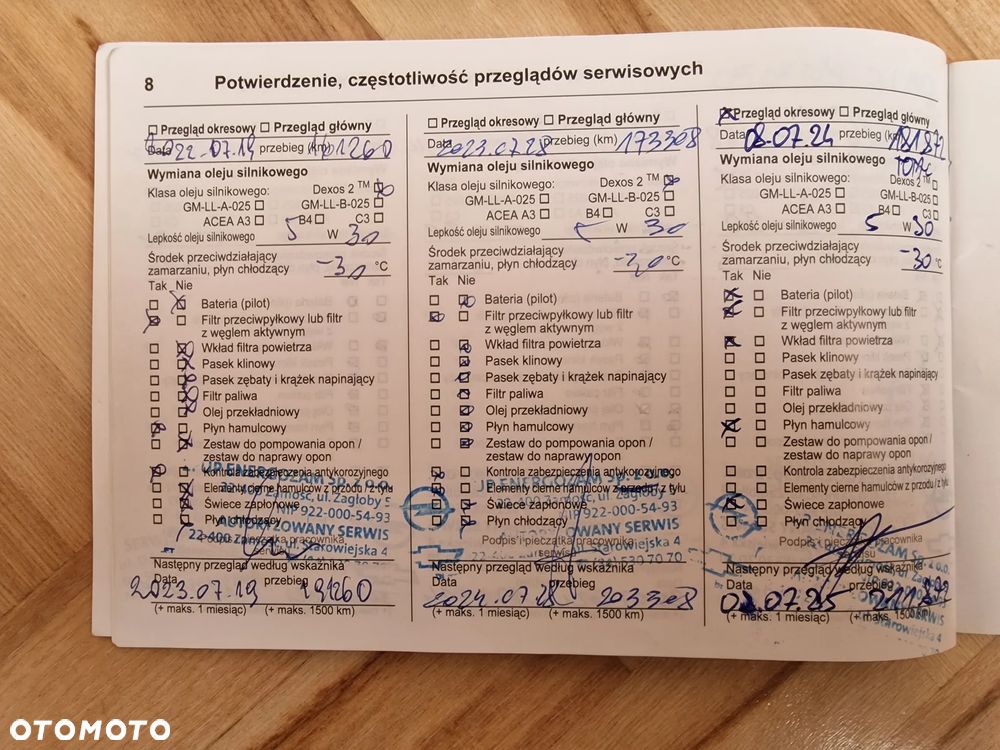 8 Potwierdzenie, częstotliwość przeglądów serwisowych
Przegląd okresowy Przegląd główny
Data 2022.07.19 przebieg (km) 161260
Wymiana oleju silnikowego
Klasa oleju silnikowego: Dexos 2 TM
GM-LL-A-025 GM-LL-B-025
ACEA A3 B4 C3
Lepkość oleju silnikowego 5 W 30
Środek przeciwdziałający
zamarzaniu, płyn chłodzący -30 °C
Tak Nie
Bateria (pilot)
Filtr przeciwpyłkowy lub filtr
z węglem aktywnym
Wkład filtra powietrza
Pasek klinowy
Pasek zębaty i krążek napinający
Filtr paliwa
Olej przekładniowy
Płyn hamulcowy
Zestaw do pompowania opon /
zestaw do naprawy opon
Kontrola zabezpieczenia antykorozyjnego
Elementy cierne hamulców z przodu / z tyłu
Świece zapłonowe
Płyn chłodzący
JP ENERGOZAM Sp. z o.o.
22-400 Zamość, ul. Zagłoby 5
NIP 922-000-54-93
AUTORYZOWANY SERWIS
22-400 Zamość, ul. Starowiejska 4
Następny przegląd według wskaźnika
Data przebieg
2023.07.19 191260
(+ maks. 1 miesiąc) (+ maks. 1500 km)
Przegląd okresowy Przegląd główny
Data 2023.07.28 przebieg (km) 173308
Wymiana oleju silnikowego
Klasa oleju silnikowego: Dexos 2 TM
GM-LL-A-025 GM-LL-B-025
ACEA A3 B4 C3
Lepkość oleju silnikowego 5 W 30
Środek przeciwdziałający
zamarzaniu, płyn chłodzący °C
Tak Nie
Bateria (pilot)
Filtr przeciwpyłkowy lub filtr
z węglem aktywnym
Wkład filtra powietrza
Pasek klinowy
Pasek zębaty i krążek napinający
Filtr paliwa
Olej przekładniowy
Płyn hamulcowy
Zestaw do pompowania opon /
zestaw do naprawy opon
Kontrola zabezpieczenia antykorozyjnego
Elementy cierne hamulców z przodu / z tyłu
Świece zapłonowe
Płyn chłodzący
JP ENERGOZAM Sp. z o.o.
22-400 Zamość, ul. Zagłoby 5
NIP 922-000-54-93
AUTORYZOWANY SERWIS
22-400 Zamość, ul. Starowiejska 4
Podpis i pieczątka pracownika
serwisu
Następny przegląd według wskaźnika
Data przebieg
2024.07.28 203308
(+ maks. 1 miesiąc) (+ maks. 1500 km)
Przegląd okresowy Przegląd główny
Data 08.07.24 przebieg (km) 181872
Wymiana oleju silnikowego
Klasa oleju silnikowego: Dexos 2 TM
GM-LL-A-025 GM-LL-B-025
ACEA A3 B4 C3
Lepkość oleju silnikowego 5 W 30
Środek przeciwdziałający
zamarzaniu, płyn chłodzący -30 °C
Tak Nie
Bateria (pilot)
Filtr przeciwpyłkowy lub filtr
z węglem aktywnym
Wkład filtra powietrza
Pasek klinowy
Pasek zębaty i krążek napinający
Filtr paliwa
Olej przekładniowy
Płyn hamulcowy
Zestaw do pompowania opon /
zestaw do naprawy opon
Kontrola zabezpieczenia antykorozyjnego
Elementy cierne hamulców z przodu / z tyłu
Świece zapłonowe
Płyn chłodzący
Podpis i pieczątka pracownika
serwisu
Następny przegląd według wskaźnika
Data przebieg
07.25 211872
(+ maks. 1 miesiąc) (+ maks. 1500 km)
OTOMOTO